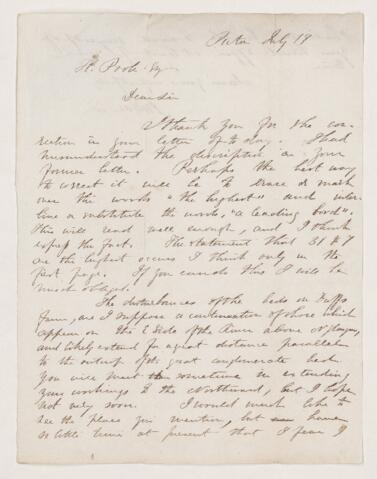 Pictou July 19
H. Poole Esq
Dear Sir
I thank you for the cor-
rection in your letter of to day. I had
misunderstood the description in your
former letter. Perhaps the best way
to correct it will be to erase or mark
over the words "the highest" and inter-
line or substitute the words, "a leading bed".
This will read well enough, and I think
express the fact. The statement that 51 & 7
are the highest occurs I think only in the
first page. If you can do this I will be
much obliged.
The disturbances of the beds on
farm, are I suppose a continuation of those which
appear on the E side of the River above N. Glasgow,
and likely extend for a great distance parallel
to the outcrop of the great conglomerate bed.
You will meet them sometime in extending
your workings to the Northward, but I hope
not very soon. I would much like to
see the place you mention, but have
so little time at present that I fear I